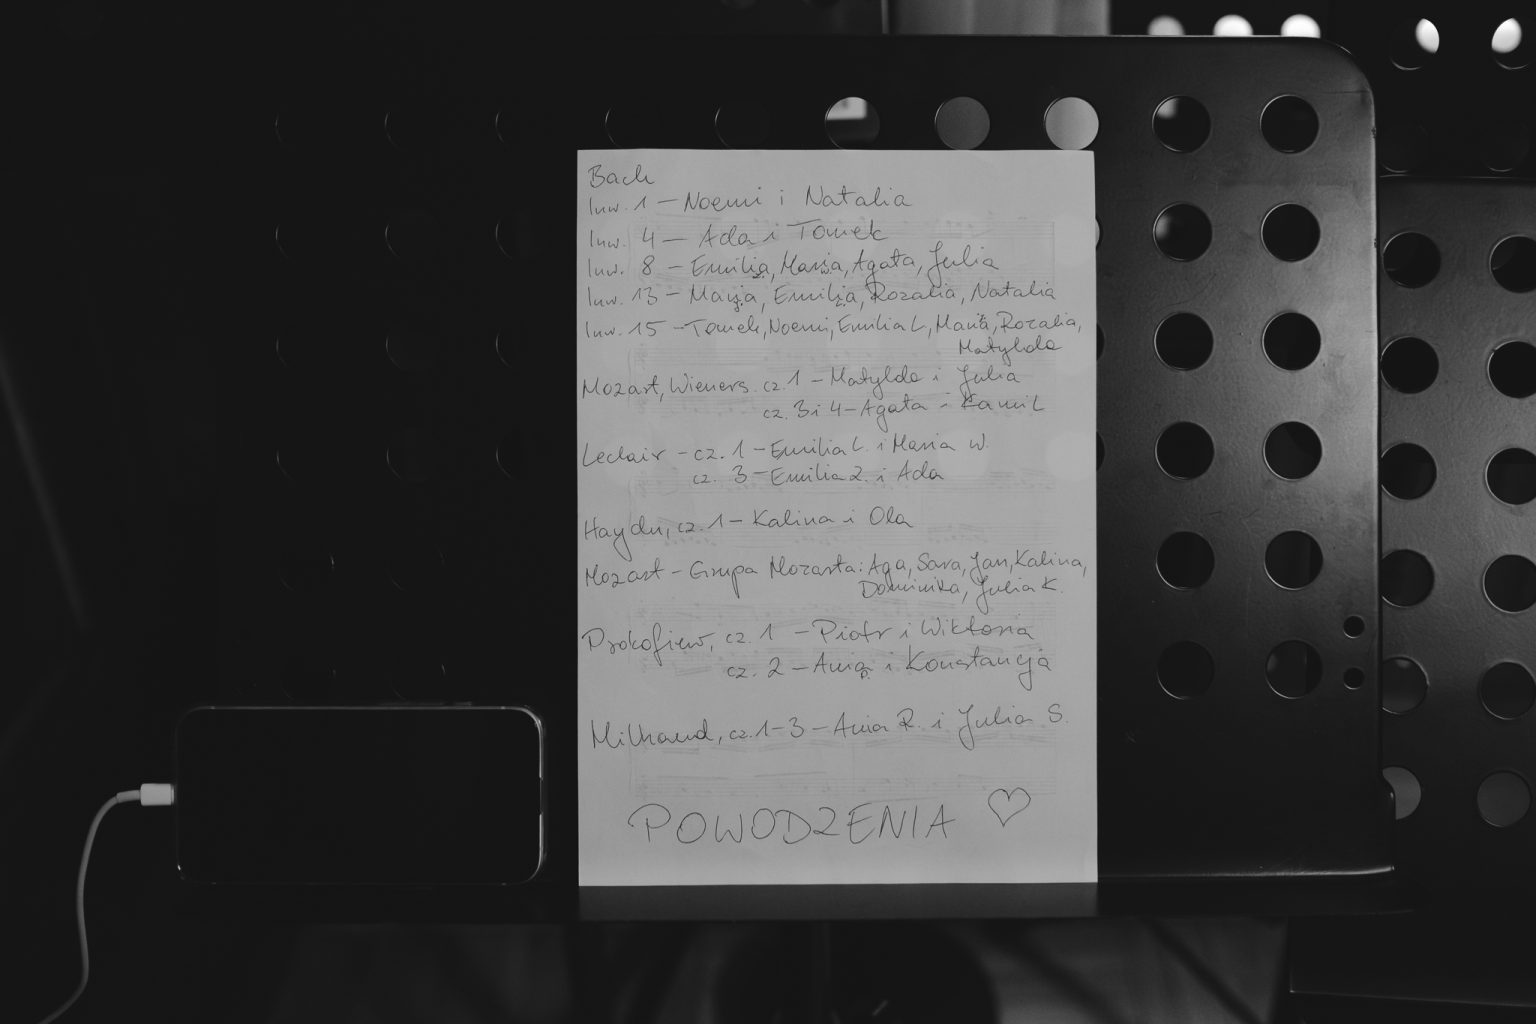 Bach
Inw. 1 – Noemi i Natalia
Inw. 4 – Ada i Tomek
Inw. 8 – Emilia, Maria, Agata, Julia
Inw. 13 – Maria, Emilia, Rozalia, Natalia
Inw. 15 – Tomek, Noemi, Emilia L, Maria, Rozalia,
Matylda
Mozart, Wieners. cz. 1 – Matylda i Julia
cz. 3 i 4 – Agata i Kamil
Leclair – cz. 1 – Emilia L. i Maria W.
cz. 3 – Emilia Z. i Ada
Haydn, cz. 1 – Kalina i Ola
Mozart – Grupa Mozarta: Aga, Sara, Jan, Kalina,
Dominika, Julia K.
Prokofiew, cz. 1 – Piotr i Wiktoria
cz. 2 – Ania i Konstancja
Milhaud, cz. 1–3 – Ania R. i Julia S.
POWODZENIA ♡